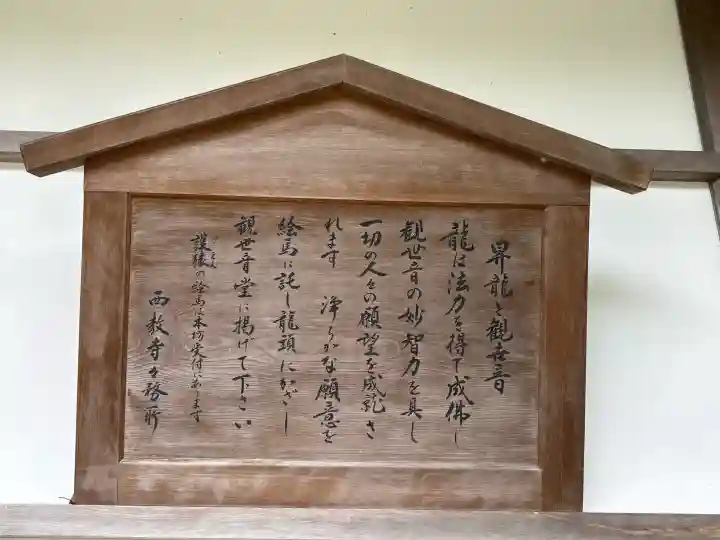 昇龍と観世音
龍は法力を得て成佛し
観世音の妙智力を具し
一切の人々の願望を成就さ
れます 浄らかな願意を
絵馬に託し龍頭にかざし
観世音堂に掲げて下さい
護猿の絵馬は本坊受付にあります
西教寺寺務所